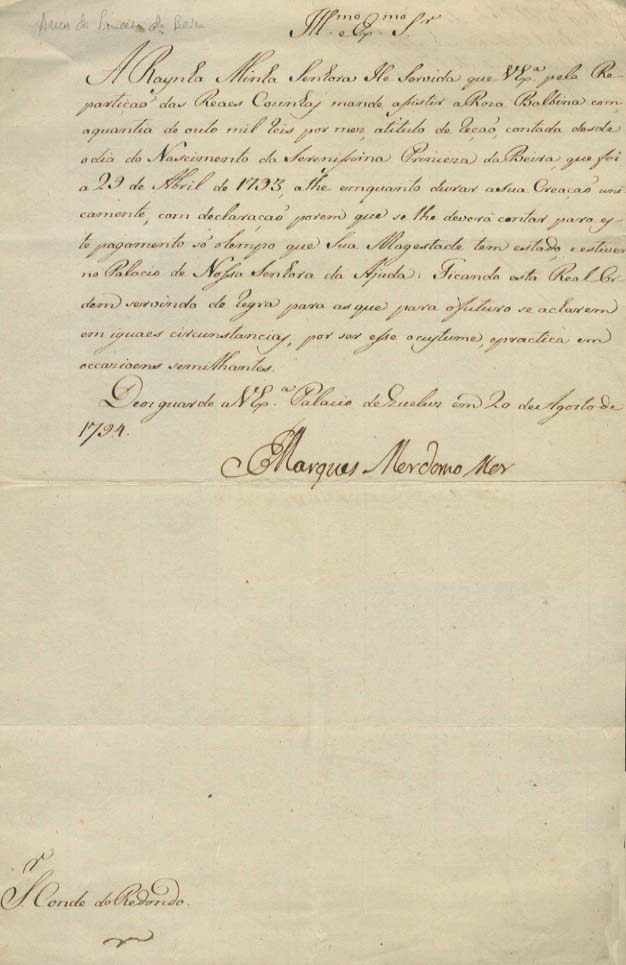 Ama da Princeza da Beira
Ill.mo e Ex.mo S.r
A Raynha Minha Senhora He Servida que V Ex.ª pela Re-
partição das Reaes Couzinhas mande assistir a Roza Balbina com
a quantia de outo mil reis por mez, a titulo de reção, contada desde
o dia do Nascimento da Serenissima Princeza da Beira, que foi
a 29 de Abril de 1793, athe emquanto durar a sua Creação uni-
camente, com declaração porem que se lhe deverá contar para es-
te pagamento só o tempo que Sua Magestade tem estado, e estiver
no Palacio de Nossa Senhora da Ajuda: Ficando esta Real Or-
dem servindo de regra para as que para o futuro se acharem
em iguaes circunstancias, por ser esse o custume, e practica em
occazioens semilhantes.
Deos guarde a V Ex.ª Palacio de Queluz em 20 de Agosto de
1794.
Marques Mordomo Mor
S.r Conde do Redondo.